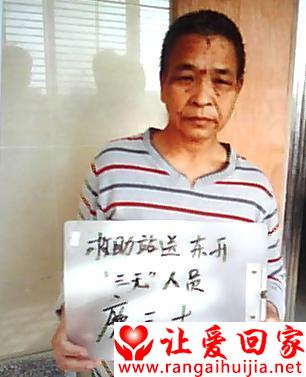 救助站送 东升
"三无"人员
让爱回家
www.rangaihuijia.net